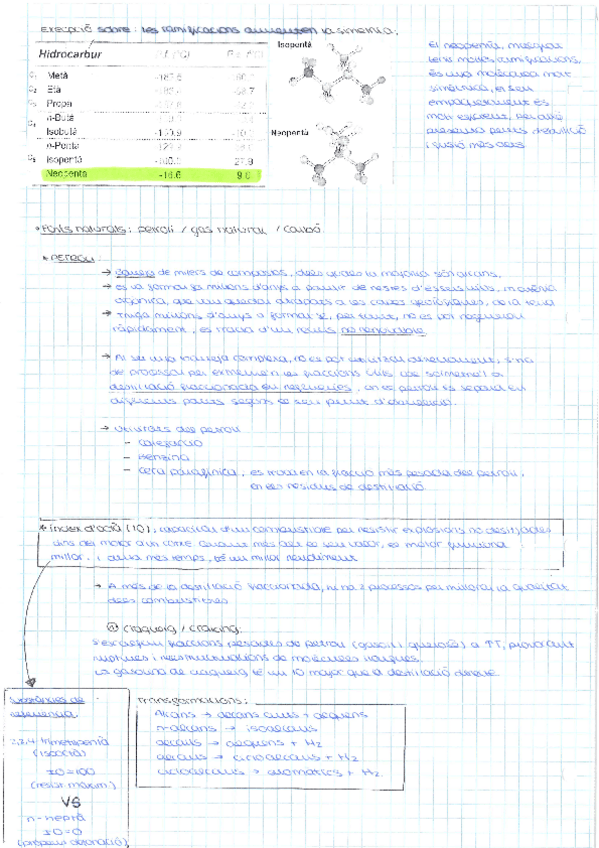 Excepció sobre: les ramificacions augmenten la simetria.
Hidrocarbur
C₁ Metà -187.6
C₂ Età
C₃ Propà
n-Butà
Isobutà
n-Pentà
C₅ Isopentà 27.9
Neopentà -16.6 9.0
Isopentà
Neopentà
El neopentà, malgrat
tenir moltes ramificacions,
és una molècula molt
simètrica, el seu
empaquetament és
molt eficient, per això
presenta punts d'ebullició
i fusió més alts
Fonts naturals: petroli / gas natural / carbó
PETROLI:
→ de milers de compostos, dels quals la majoria són alcans.
→ es va formar fa milions d'anys a partir de restes d'éssers vius, matèria
orgànica, que van quedar atrapats a les capes de la terra
→ Triga milions d'anys a formar-se, per tant, no es pot regenerar
ràpidament, es tracta d'un recurs no renovable
→ Al ser una barreja complexa, no es pot utilitzar directament, s'ha
de processar per extreure'n les fraccions útils que sotmetre'l a
destil·lació fraccionada en refineries, on el petroli es separa en
diferents parts segons el seu punt d'ebullició.
→ Utilitats del petroli
– Calefacció
– Benzina
– Cera parafínica, es troba en la fracció més pesada del petroli,
en els residus de destil·lació
* Índex d'octà (IO), capacitat d'un combustible per resistir explosions no desitjades
dins del motor d'un cotxe. Quant més alt és el seu valor, el motor funciona
millor. I alhora més temps, té un millor rendiment
→ A més de la destil·lació fraccionada, hi ha 2 processos per millorar la qualitat
dels combustibles
① Craqueig / cracking:
S'escalfen fraccions pesades de petroli (gasoil i querosè) a ↑T, provocant
ruptures i reestructuracions de molècules llargues.
La gasolina de craqueig té un IO major que la destil·lació directe
Substàncies de
referència.
2,2,4-trimetilpentà
(isooctà)
IO=100
(resist. màxim.)
VS
n-heptà
IO=0
(detonació)
Transformacions:
Alcans → alcans curts + alquens
n-alcans → isoalcans
alcans → alquens + H₂
alcans → cicloalcans + H₂
cicloalcans → aromàtics + H₂